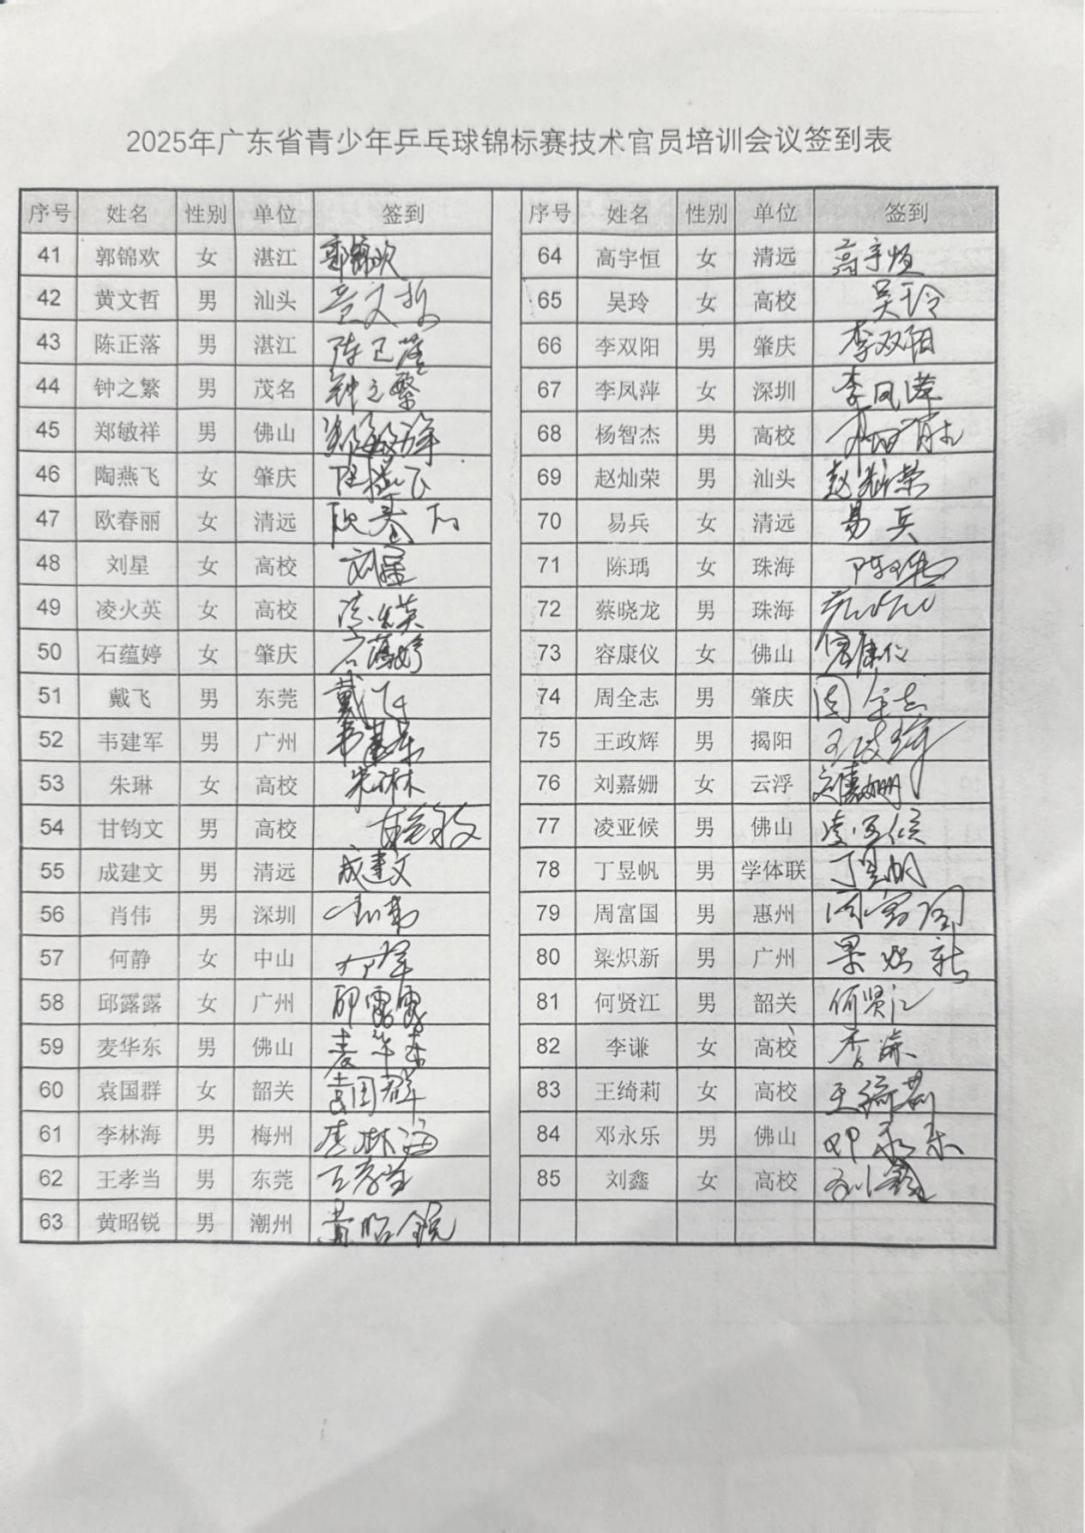 2025年广东省青少年乒乓球锦标赛技术官员培训会议签到表
序号 姓名 性别 单位 签到 序号 姓名 性别 单位 签到
41 郭锦欢 女 湛江 郭锦欢 64 高宇恒 女 清远 高宇恒
42 黄文哲 男 汕头 黄文哲 65 吴玲 女 高校 吴玲
43 陈正落 男 湛江 陈正落 66 李双阳 男 肇庆 李双阳
44 钟之繁 男 茂名 钟之繁 67 李凤萍 女 深圳 李凤萍
45 郑敏祥 男 佛山 郑敏祥 68 杨智杰 男 高校
46 陶燕飞 女 肇庆 陶燕飞 69 赵灿荣 男 汕头 赵灿荣
47 欧春丽 女 清远 欧春丽 70 易兵 女 清远 易兵
48 刘星 女 高校 刘星 71 陈瑀 女 珠海 陈瑀
49 凌火英 女 高校 凌火英 72 蔡晓龙 男 珠海
50 石蕴婷 女 肇庆 石蕴婷 73 容康仪 女 佛山 容康仪
51 戴飞 男 东莞 戴飞 74 周全志 男 肇庆 周全志
52 韦建军 男 广州 韦建军 75 王政辉 男 揭阳 王政辉
53 朱琳 女 高校 朱琳 76 刘嘉姗 女 云浮 刘嘉姗
54 甘钧文 男 高校 77 凌亚候 男 佛山 凌亚候
55 成建文 男 清远 成建文 78 丁昱帆 男 学体联 丁昱帆
56 肖伟 男 深圳 79 周富国 男 惠州 周富国
57 何静 女 中山 80 梁炽新 男 广州 梁炽新
58 邱露露 女 广州 邱露露 81 何贤江 男 韶关 何贤江
59 麦华东 男 佛山 麦华东 82 李谦 女 高校 李谦
60 袁国群 女 韶关 袁国群 83 王绮莉 女 高校 王绮莉
61 李林海 男 梅州 李林海 84 邓永乐 男 佛山 邓永乐
62 王孝当 男 东莞 王孝当 85 刘鑫 女 高校 刘鑫
63 黄昭锐 男 潮州 黄昭锐